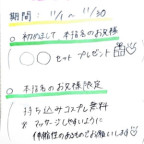 期間：11/1 〜 11/30
○ 初めまして 本指名のお客様
◯◯セット プレゼント
○ 本指名のお客様限定
持ち込みコスプレ無料
※ マッサージしやすいように
伸縮性のあるものでお願いします